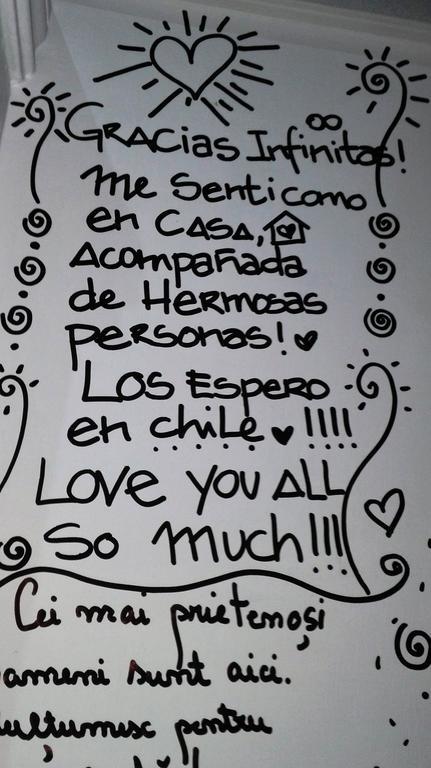 Gracias Infinitas!
me sentí como
en casa,
Acompañada
de Hermosas
personas!
Los Espero
en chile !!!!
Love you ALL
So much!!!
Cei mai prietenoși
oameni sunt aici.
pentru